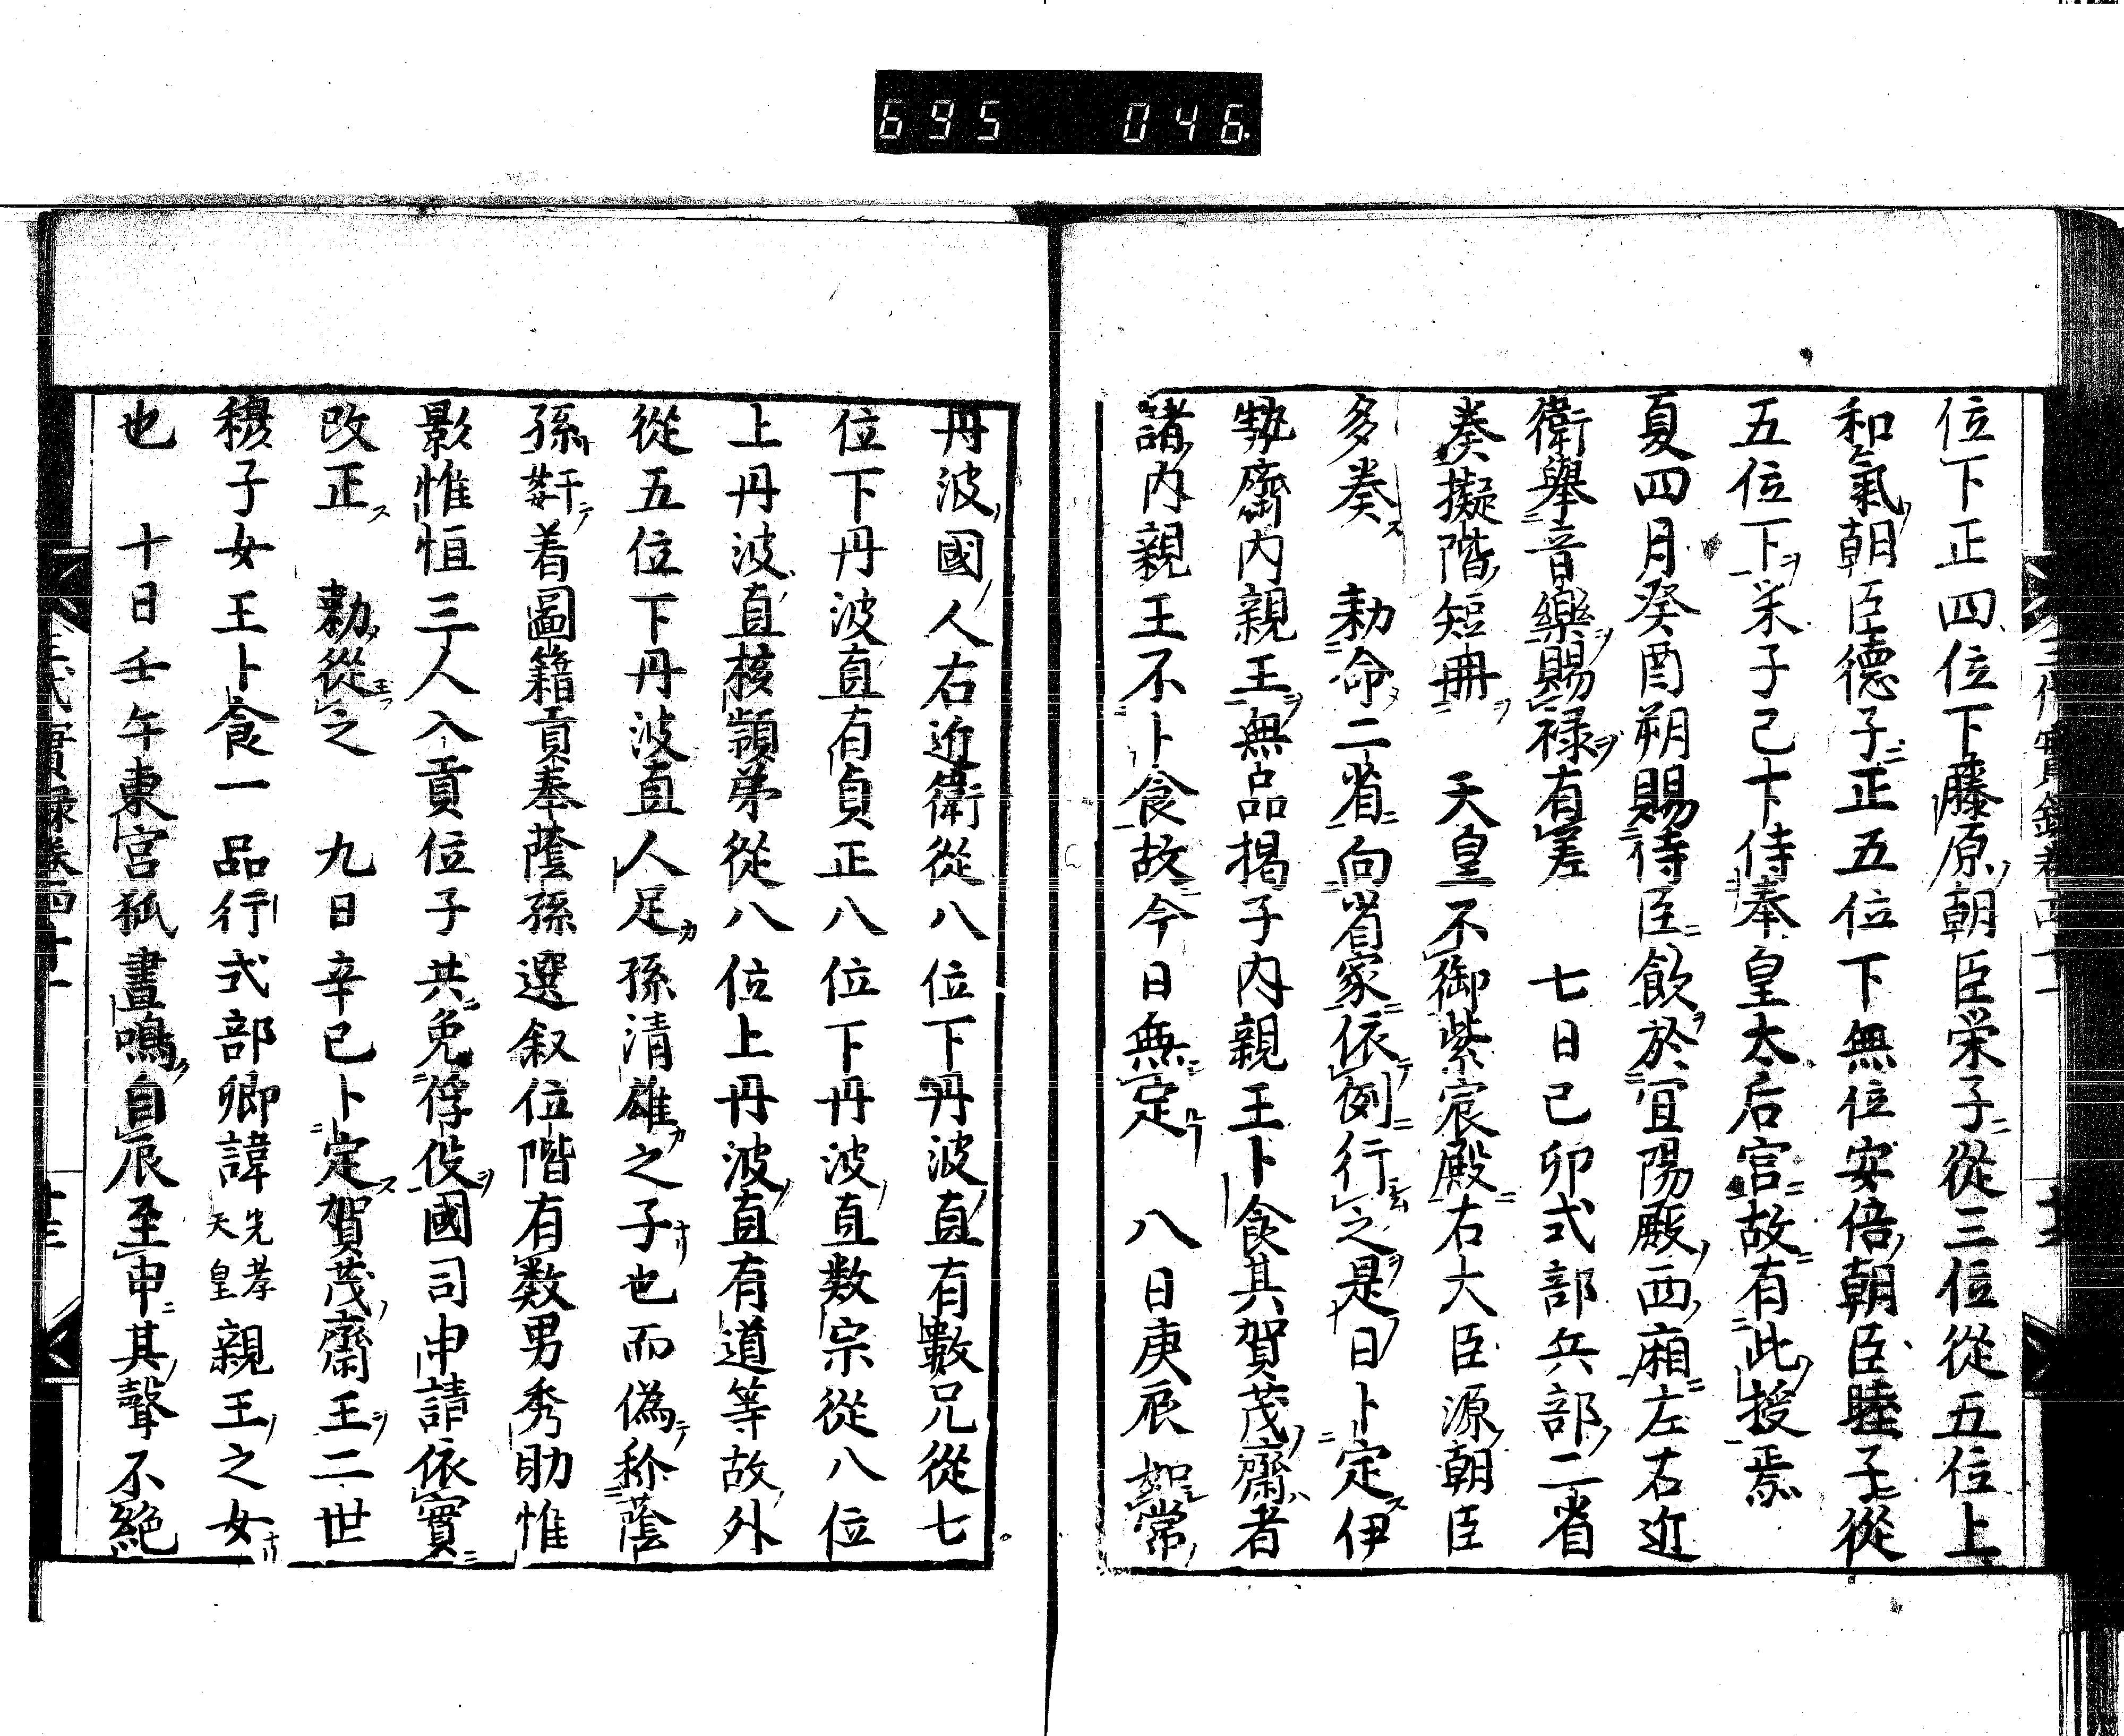 695 046.
位下正四位下藤原朝臣栄子從三位從五位上
和氣朝臣德子正五位下無位安倍朝臣睦子從
五位下栄子已下侍奉皇太后宮故有此授焉
夏四月癸酉朔賜侍臣飲於宜陽殿西廂左右近
衛擧音樂賜禄有差 七日己卯式部兵部二省
奏擬階短冊 天皇不御紫宸殿右大臣源朝臣
多奏 勅命二省向省家依例行之是日卜定伊
勢齋内親王無品掲子内親王卜食其賀茂齋者
諸内親王不卜食故今日無定 八日庚辰 常
丹波國人右近衛從八位下丹波直有數兄從七
位下丹波直有貞正八位下丹波直数宗從八位
上丹波直核頴弟從八位上丹波直有道等故外
從五位下丹波直人足孫清雄之子也而偽称蔭
孫 着圖籍貢奉蔭孫選叙位階有数男秀助惟
影惟恒三人入貢位子共免俘役國司申請依實
改正 勅從之 九日辛已卜定賀茂齋王二世
穆子女王卜食一品行式部卿諱光孝天皇親王之女
也 十日壬午東宮狐晝鳴自辰至申其聲不絶
三代實録卷四十一